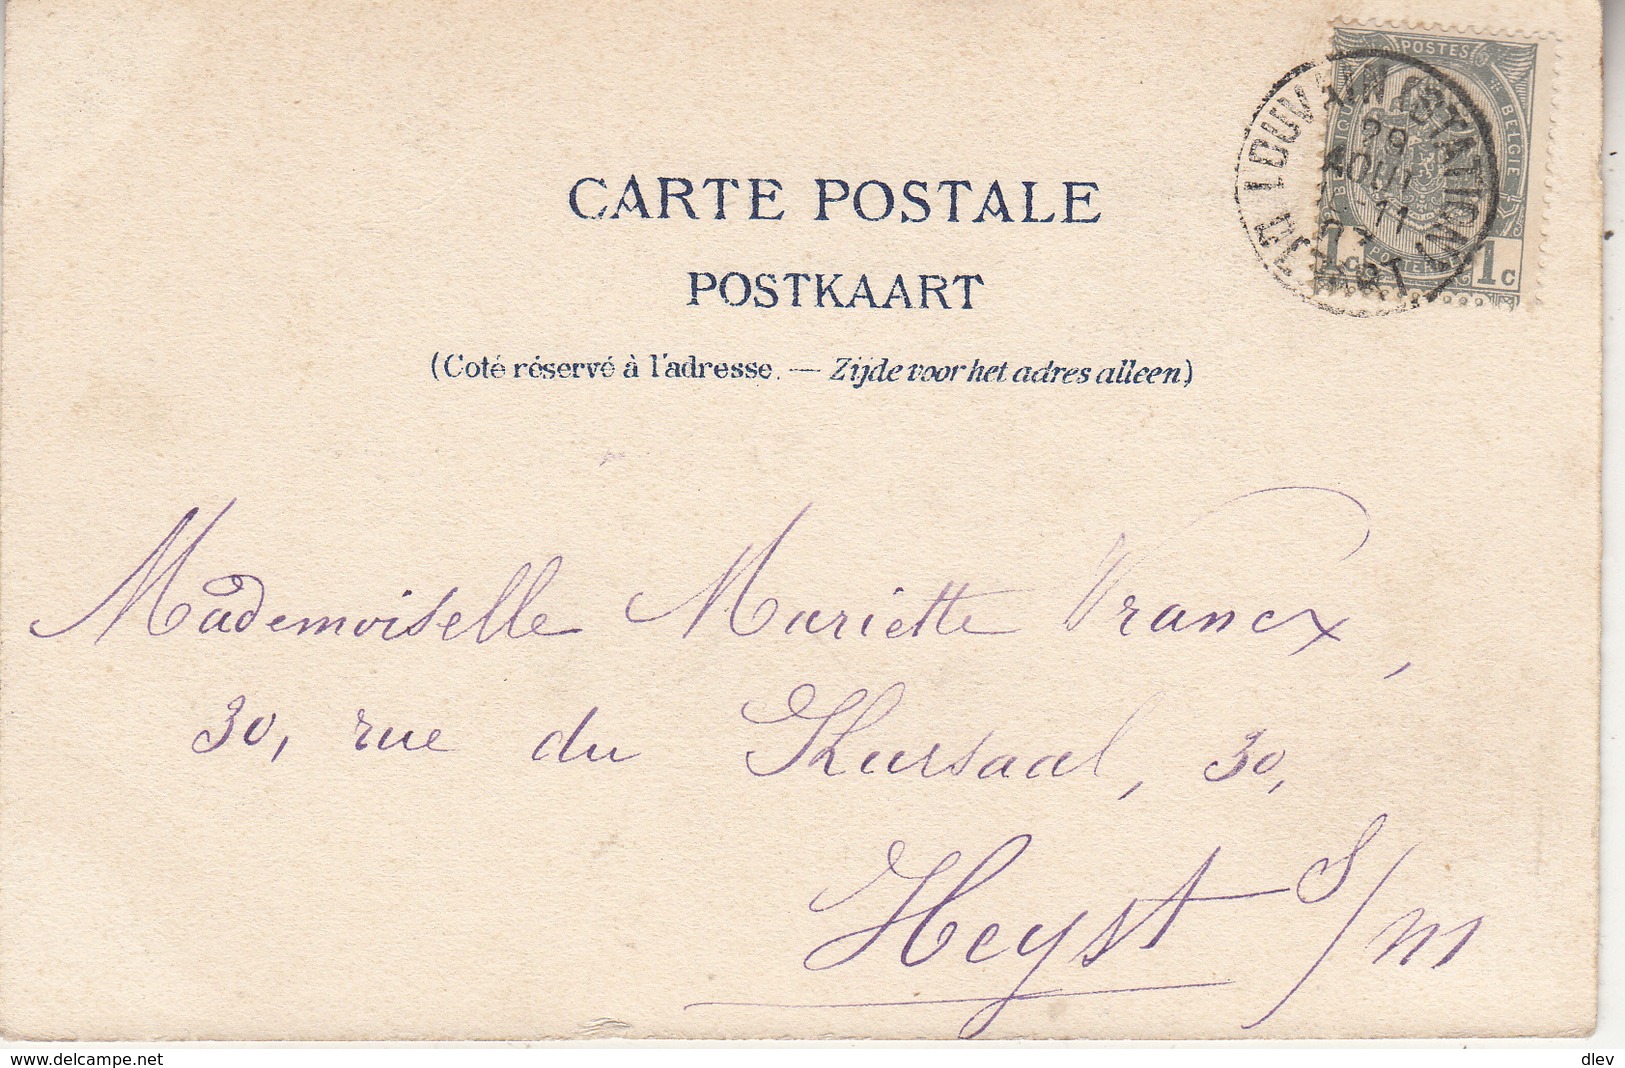 CARTE POSTALE
POSTKAART
(Coté réservé à l'adresse. — Zijde voor het adres alleen)
POSTES
BELGIE
1c 1c
LOUVAIN (STATION)
29
AOUT
11
DÉPART
Mademoiselle Mariette Vrancx,
30, rue du Kursaal, 30,
Heyst s/m
www.delcampe.net
dlev